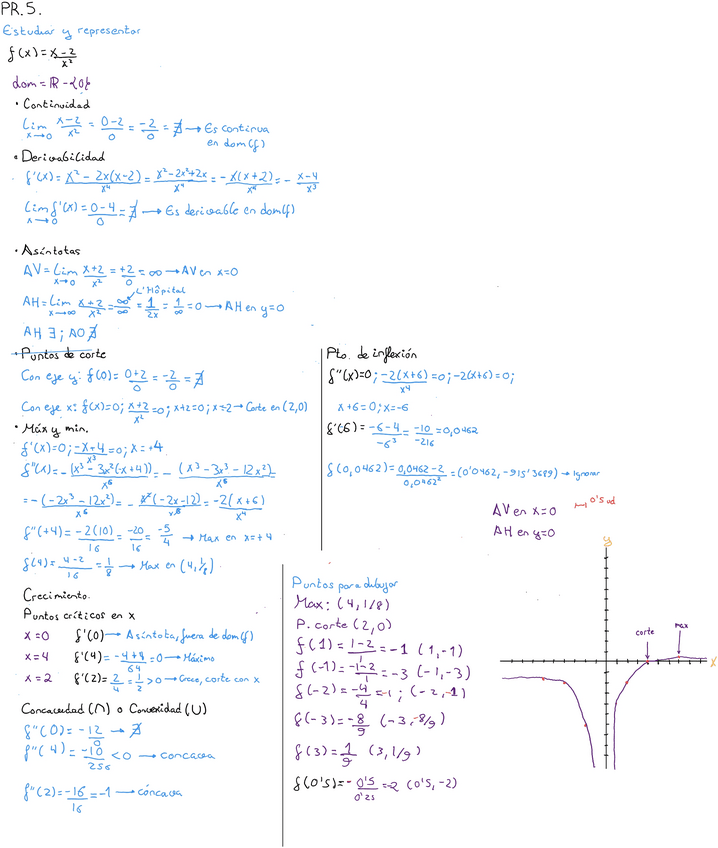 PR.5.
Estudiar y representar
f(x) = x-2/x²
dom = ℝ - {0}
• Continuidad
Lim x→0 x-2/x² = 0-2/0 = -2/0 = ∄ → Es continua en dom(f)
• Derivabilidad
f'(x) = x² - 2x(x-2)/x⁴ = x² - 2x² + 2x/x⁴ = - x(x+2)/x⁴ = - x-4/x³
Lim x→0 f'(x) = 0-4/0 = ∄ → Es derivable en dom(f)
• Asíntotas
AV = Lim x→0 x+2/x² = +2/0 = ∞ → AV en x=0
AH = Lim x→∞ x+2/x² = ∞/∞ L'Hôpital = 1/2x = 1/∞ = 0 → AH en y=0
AH ∃ ; AO ∄
• Puntos de corte
Con eje y: f(0) = 0+2/0 = -2/0 = ∄
Con eje x: f(x)=0; x+2/x² = 0; x+2=0; x=2 → Corte en (2,0)
• Máx y min.
f'(x)=0; -x+4/x³ = 0; x=+4
f''(x) = -(x³ - 3x²(x+4))/x⁶ = -(x³ - 3x³ - 12x²)/x⁶
= -(-2x³ - 12x²)/x⁶ = - x²(-2x-12)/x⁶ = -2(x+6)/x⁴
f''(+4) = -2(10)/16 = -20/16 = -5/4 → Max en x=+4
f(4) = 4-2/16 = 1/8 → Max en (4, 1/8)
Crecimiento.
Puntos críticos en x
x=0 f'(0) → Asíntota, fuera de dom(f)
x=4 f'(4) = -4+8/64 = 0 → Máximo
x=2 f'(2) = 2/4 = 1/2 > 0 → Crece, corte con x
Concavidad (∩) o Convexidad (∪)
f''(0) = -12/0 → ∄
f''(4) = -10/256 < 0 → concava
f''(2) = -16/16 = -1 → cóncava
Pto. de inflexión
f''(x)=0; -2(x+6)/x⁴ = 0; -2(x+6) = 0;
x+6=0; x=-6
f'(6) = -6-4/-6³ = -10/-216 = 0,0462
f(0,0462) = 0,0462-2/0,0462² = (0'0462, -915'3689) → Ignorar
Puntos para dibujar
Max: (4, 1/8)
P. corte (2,0)
f(1) = 1-2/1 = -1 (1,-1)
f(-1) = -1-2/1 = -3 (-1,-3)
f(-2) = -4/4 = -1; (-2,-1)
f(-3) = -8/9 (-3,-8/9)
f(3) = 1/9 (3, 1/9)
f(0'5) = - 0'5/0'25 = -2 (0'5, -2)
AV en x=0
0'5 ud
AH en y=0
y
corte
max
x